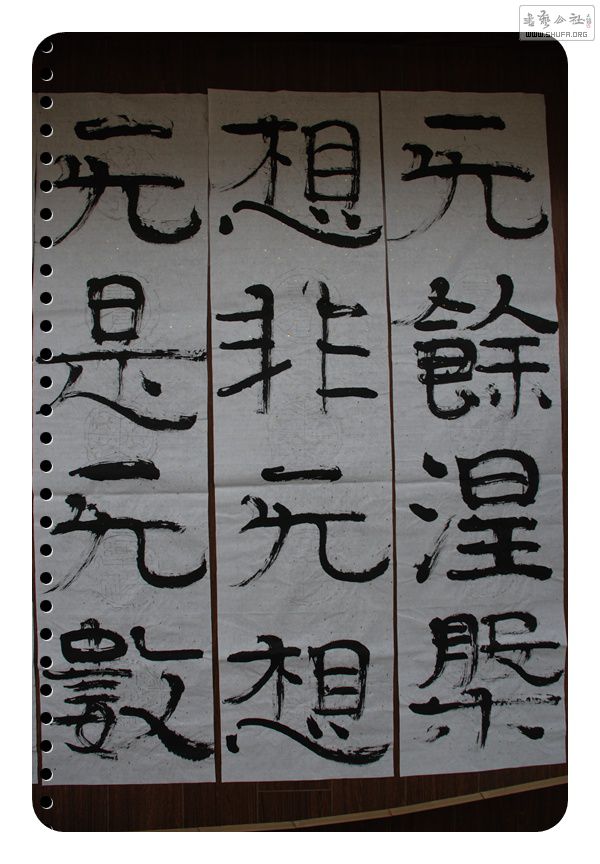 无餘涅槃
想非无想
无是无數
書藝公社
WWW.SHUFA.ORG